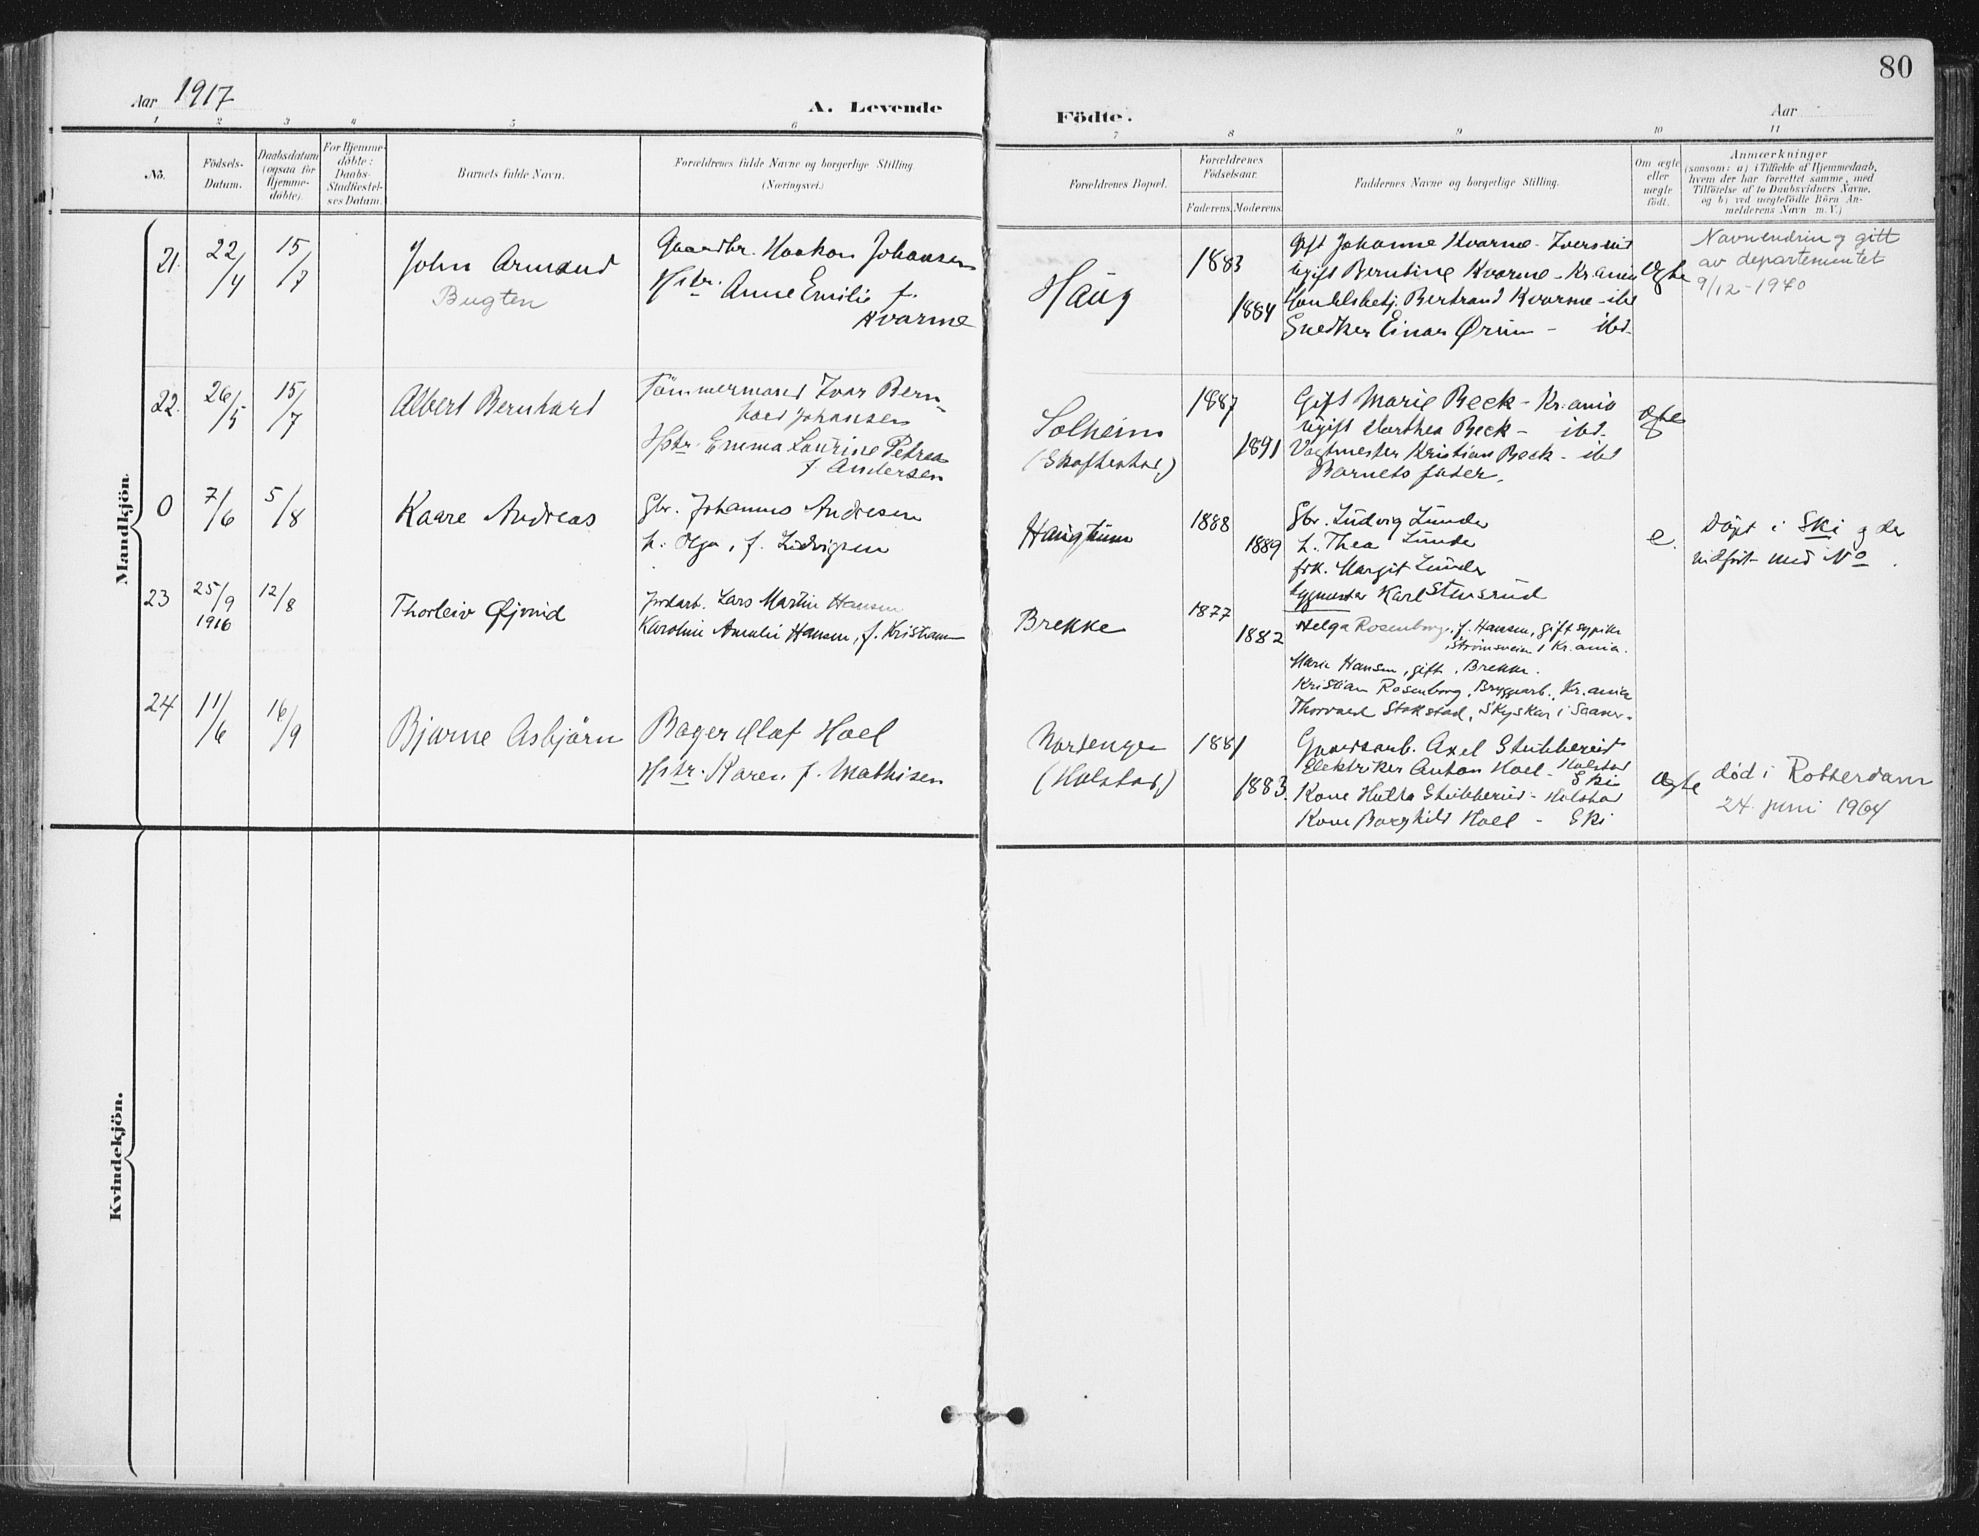 80
Aar 1917
A. Levende
Födte.
Aar
1 2 3 4 5 6
7 8 9 10 11
No.
Födsels-
Datum.
Daabsdatum
(ogsaa for
Hjemme-
døbte).
For Hjemme-
døbte:
Daabs-
Stadfæstel-
ses Datum.
Barnets fulde Navn.
Forældrenes fulde Navne og borgerlige Stilling.
(Næringsvei.)
Forældrenes Bopæl.
Forældrenes
Födselsaar.
Faderens. Moderens.
Faddernes Navne og borgerlige Stilling.
Om ægte
eller
uægte
födt.
Anmærkninger
(saasom: a) i Tilfælde af Hjemmedaab,
hvem der har forrettet samme, med
Tilföielse af to Daabsvidners Navne,
og b) ved uægtefödte Börn An-
melderens Navn m. V.)
Mandkjön.
21. 22/4 15/7
John Armand
Bugten
Gaardbr. Haakon Johansen
Hstr. Anne Emilie f.
Kvarme
Haug
1883
1884
Gift Johanne Kvarme -
Ugift Berntine Kvarme - Kr.ania
Handelsbetj. Bertrand Kvarme - ibd
Snedker Einar Ørum - ibd.
Ægte
Navnendring gitt
av departementet
9/12-1940
22. 26/5 15/7
Albert Bernhard
Tömmermand Ivar Bern-
hard Johansen
Hstr. Emma Laurine Petrea
f Andersen
Solheim
(Skoftestad)
1887
1891
Gift Marie Beck - Kr.ania
Ugift Marthea Beck - ibd.
Vagtmester Kristian Beck - ibd
Barnets fader.
Ægte
0 7/6 5/8
Kaare Andreas
Gbr. Johannes Andresen
h. Olga, f. Ludvigsen
Haugtum
1888
1889
Gbr. Ludvig Lunder
h. Thea Lunder
frk. Margit Lunder
Karl Stensrud
e.
Døpt i Ski og der
indført med No.
23 25/9 1916 12/8
Thorleiv Øjvind
Jordarb. Lars Martin Hansen
Karoline Amalie Hansen, f. Kristiansen
Brekke
1877
1882
Helga Rosenborg, f. Hansen, gift
Strømsveien i Kr.ania.
Marie Hansen, gift, Brekke.
Kristian Rosenborg, Bryggearb., Kr.ania
Thorvald Stokstad, Skyskar i Saaner.
24 11/6 16/9
Bjarne Asbjørn
Bager Olaf Hoel
Hstr. Karen f. Mathisen
Nordengen
(Holstad)
1881
1883.
Gaardsarb. Axel Stubberud Holstad
Elektriker Anton Hoel - Ski
Kone Hulda Stubberud - Holstad
Kone Borghild Hoel - Ski
Ægte
død i Rotterdam
24. juni 1964
Kvindekjön.